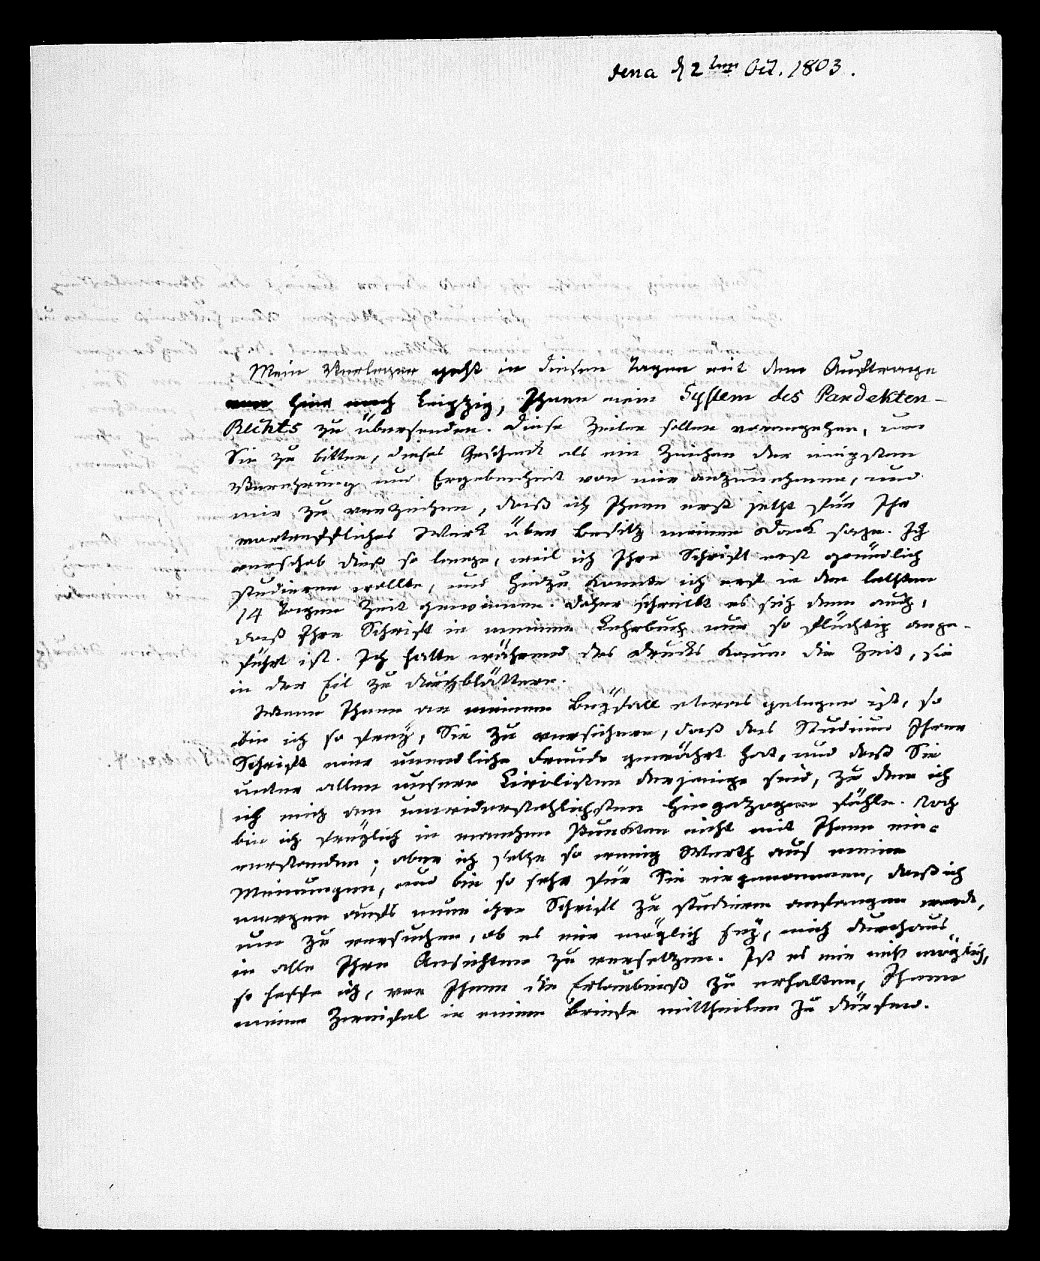 Jena d 2ten Oct. 1803.
Mein Verleger geht in diesen Tagen mit dem Auftrage
von hier nach Leipzig, Ihnen mein System des Pandekten-
Rechts zu übersenden. Diese Zeilen sollen vorangehen, um
Sie zu bitten, dieses Geschenk als ein Zeichen der innigsten
Verehrung und Ergebenheit von mir anzunehmen, und
mir zu verzeihen, daß ich Ihnen erst jetzt für Ihr
vortreffliches Werk über Besitz meinen Dank sage. Ich
verschob dieß so lange, weil ich Ihre Schrift erst gründlich
studieren wollte, und hiezu konnte ich erst in den letzten
14 Tagen Zeit gewinnen. Daher schreibt es sich denn auch,
daß Ihre Schrift in meinem Lehrbuch nur so flüchtig ange-
führt ist. Ich hatte während des Drucks kaum die Zeit, sie
in der Eil zu durchblättern.
Wenn Ihnen an meinem Beyfall etwas gelegen ist, so
bin ich so frey, Sie zu versichern, daß das Studium Ihrer
Schrift mir unendliche Freude gewährt hat, und daß Sie
unter allen unsern Civilisten derjenige sind, zu dem ich
ich mich am unwiderstehlichsten hingezogen fühle. Noch
bin ich freylich in manchen Punkten nicht mit Ihnen ein-
verstanden; aber ich setze so wenig Werth auf meine
Meinungen, und bin so sehr für Sie eingenommen, daß ich
morgen aufs neue ihre Schrift zu studieren anfangen werde,
um zu versuchen, ob es mir möglich sey, mich durchaus
in alle Ihre Ansichten zu versetzen. Ist es mir nicht möglich,
so hoffe ich, von Ihnen die Erlaubniß zu erhalten, Ihnen
meine Zweifel in einem Briefe mittheilen zu dürfen.